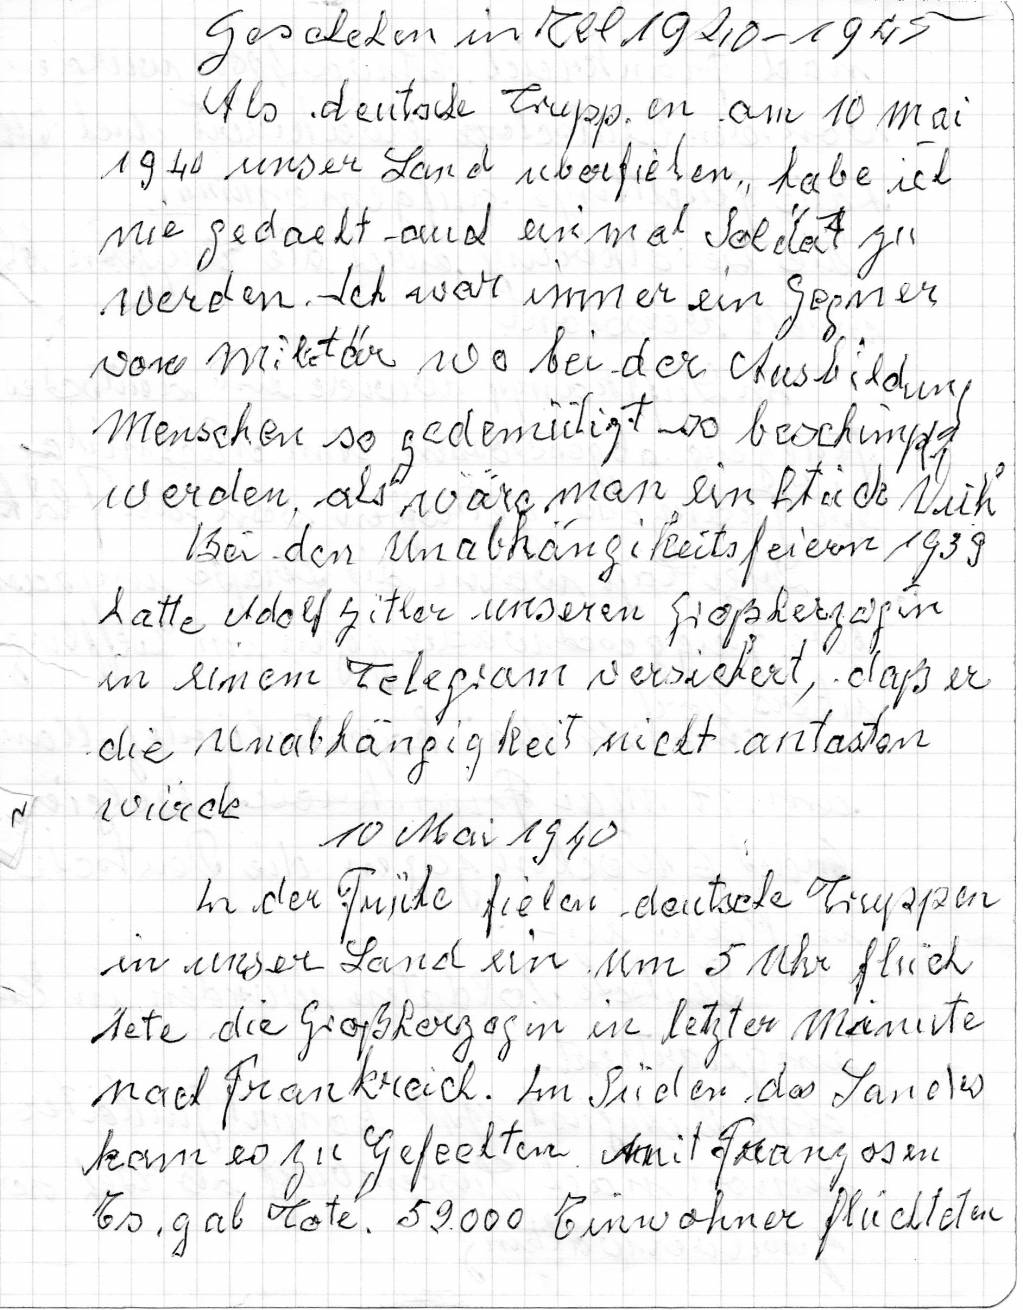 Geschehen in Kehl 1940-1945
Als deutsche Truppen am 10 Mai
1940 unser Land überfielen, habe ich
nie gedacht auch einmal Soldat zu
werden. Ich war immer ein Gegner
vom Militär wo bei der Ausbildung
Menschen so gedemütigt so beschimpft
werden, als wäre man ein Stück Vieh
Bei den Unabhängikeitsfeiern 1939
hatte Adolf Hitler unseren Großherzogin
in einem Telegram versichert, daß er
die Unabhängigkeit nicht antasten
würde
10 Mai 1940
In der Frühe fielen deutsche Truppen
in unser Land ein um 5 Uhr flüch
tete die Großherzogin in letzter Minute
nach Frankreich. Im Süden des Landes
kam es zu Gefechten mit Franzosen
Es gab Tote. 52.000 Einwohner flüchteten